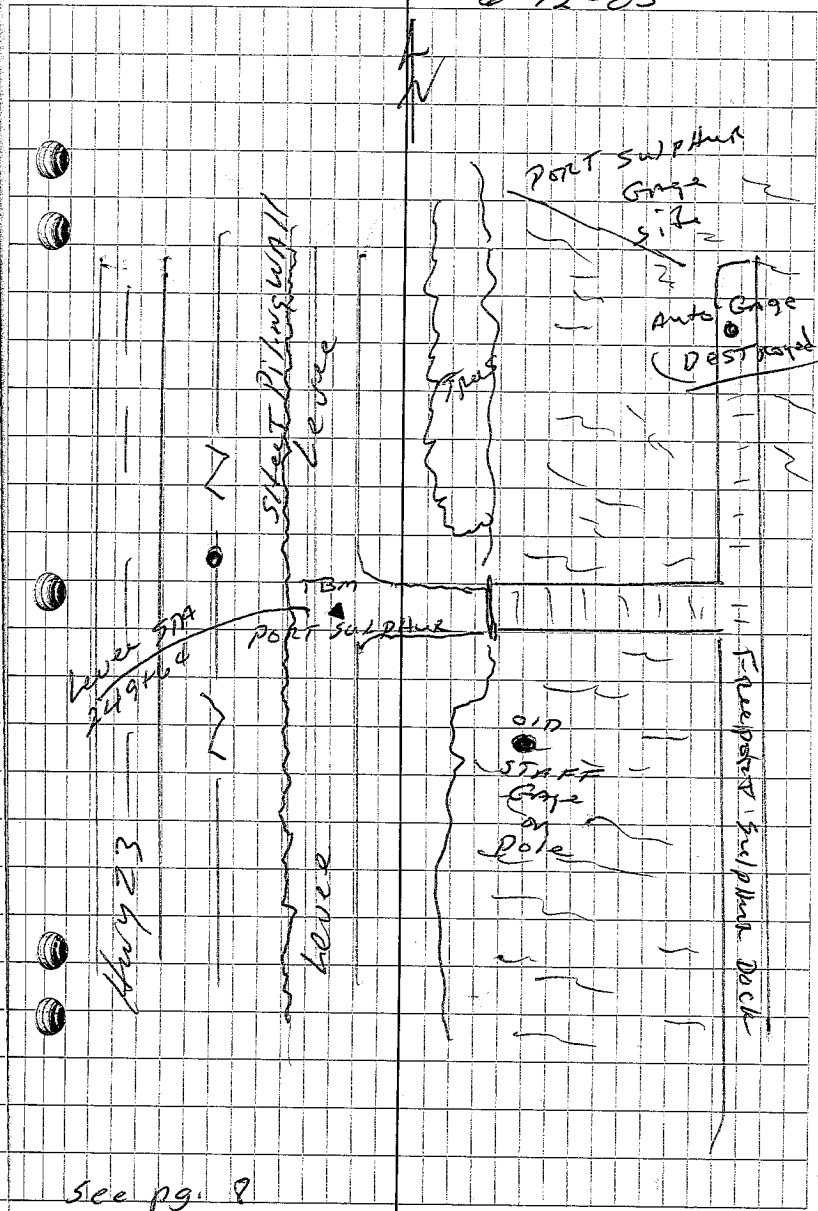 N
PORT SULPHUR
Gage
site
Auto Gage
DESTROYED
Sheet Piling Wall
Levee
Trees
TBM
PORT SULPHUR
Levee STA
249+64
OLD
STAFF
Gage
on
Pole
Freeport Sulphur Dock
Hwy 23
Levee
See pg. 8